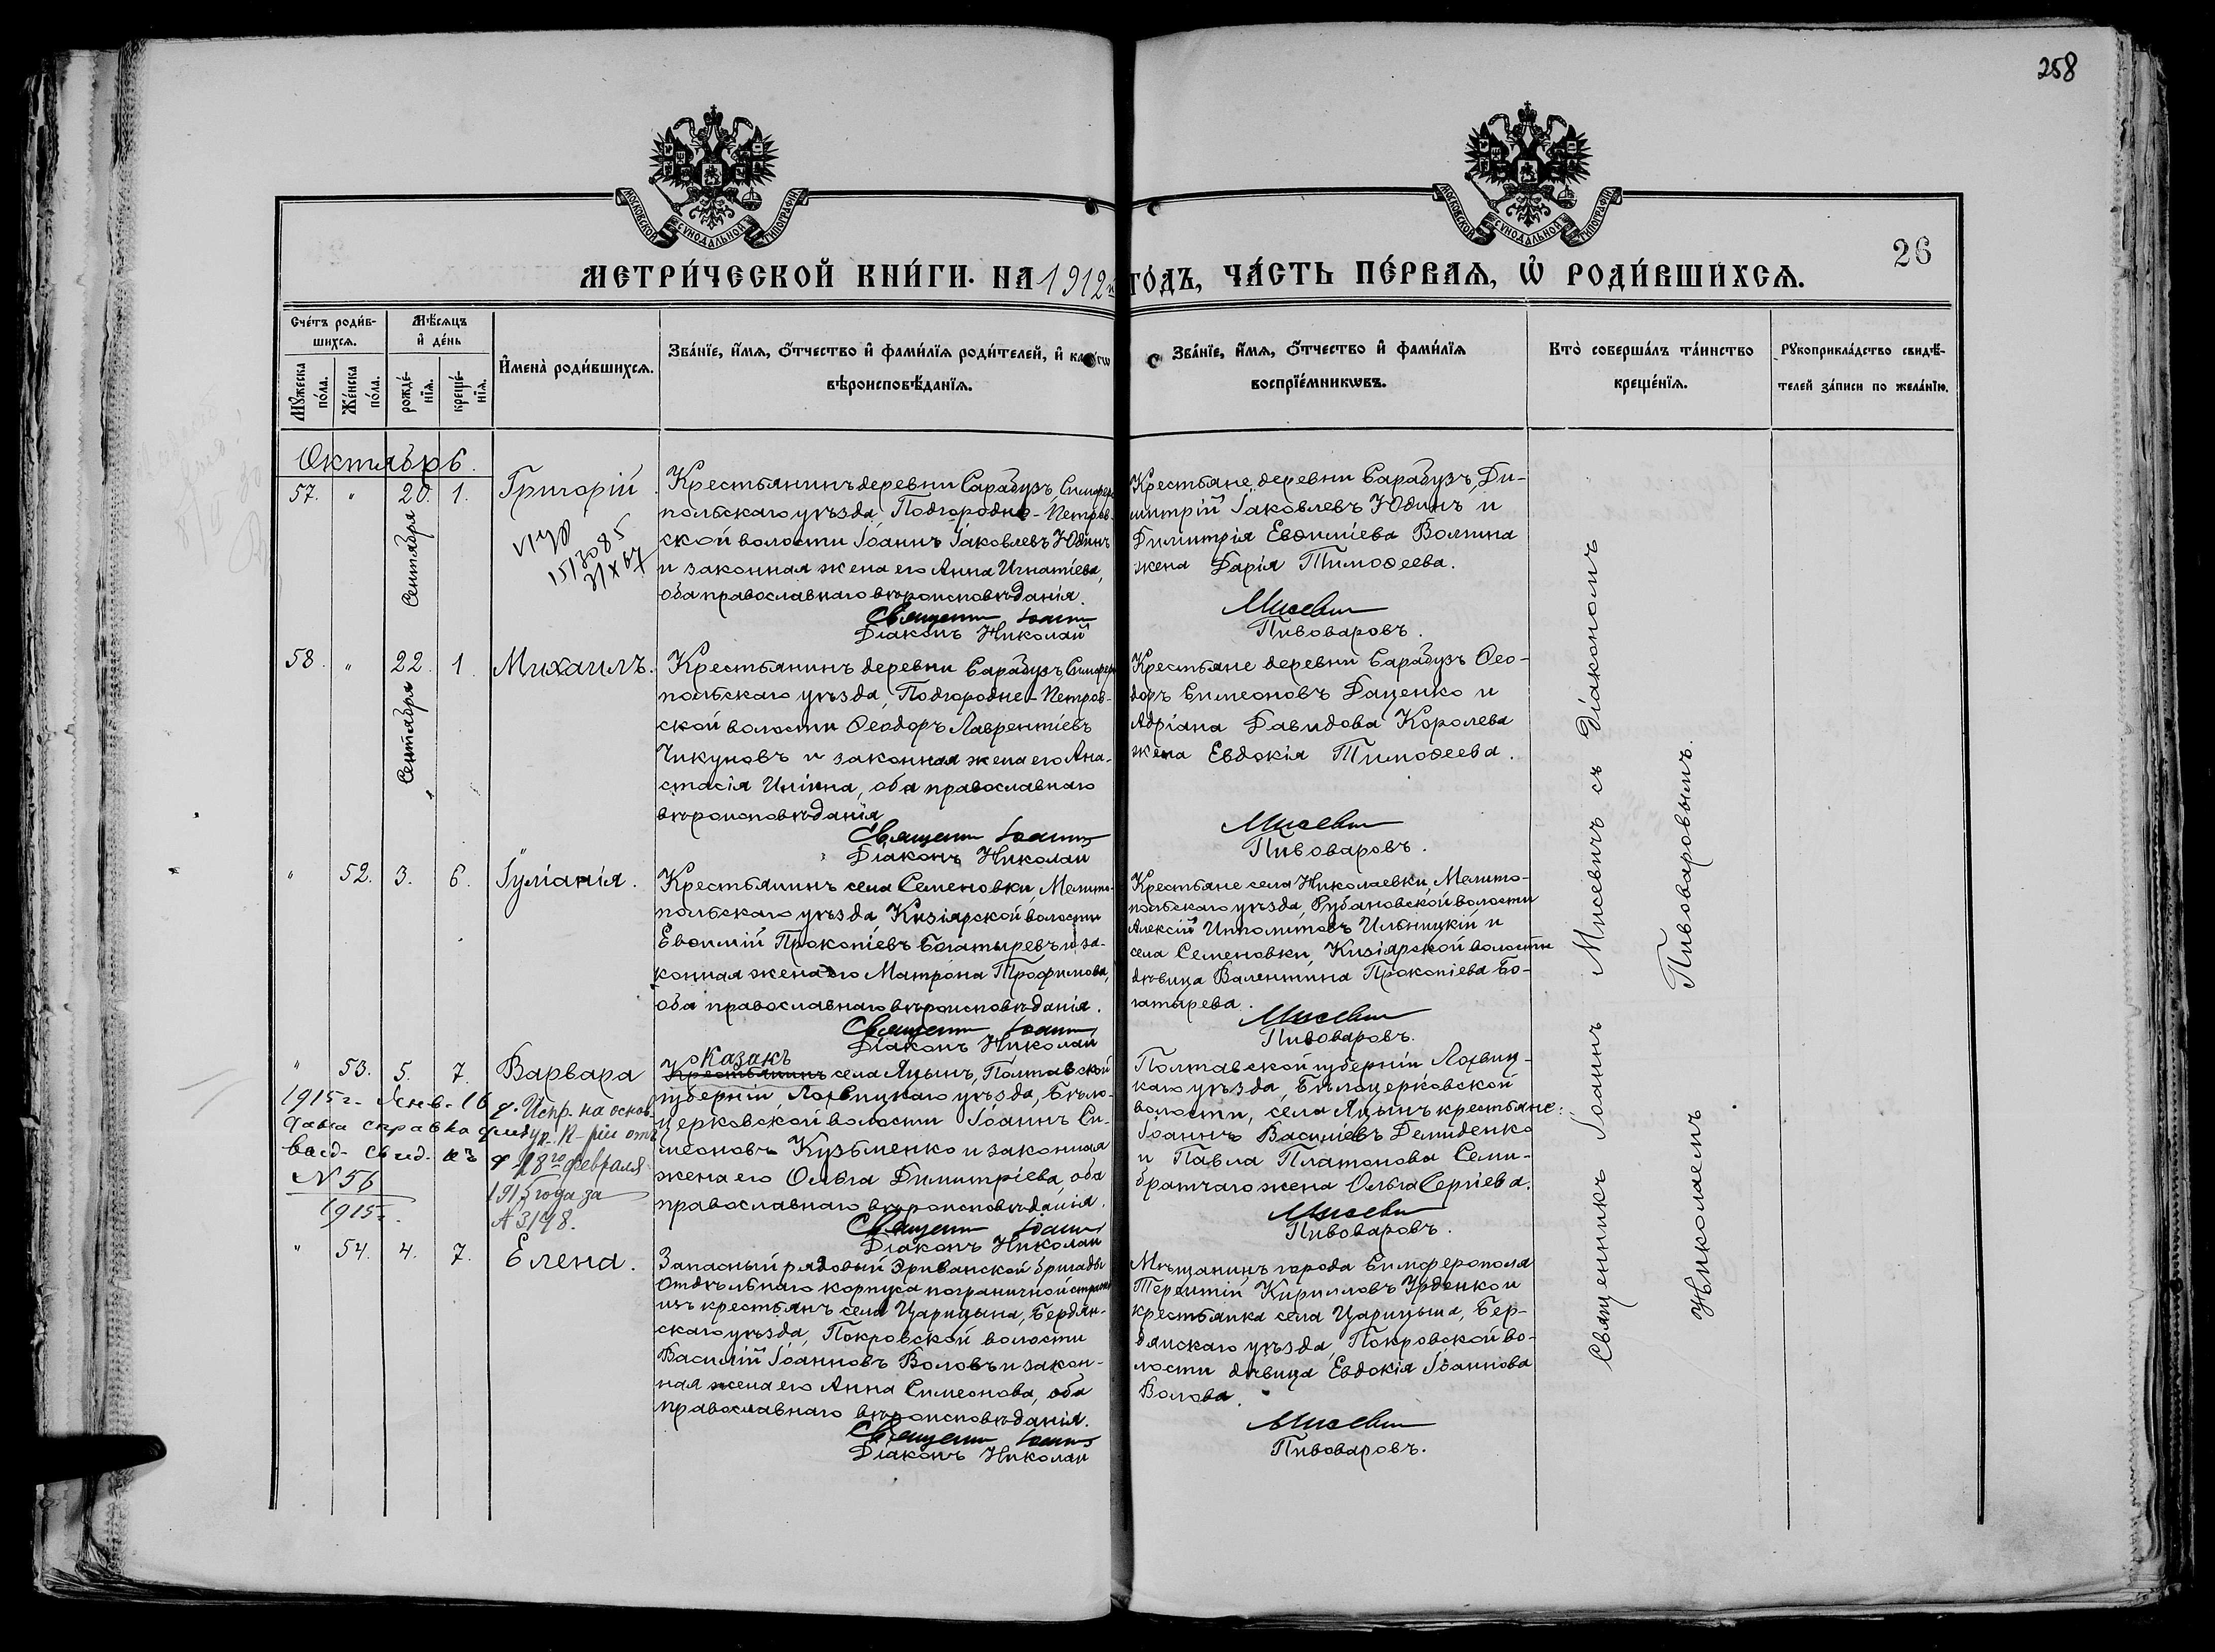 258
26
МОСКОВСКОЙ СУНОДАЛЬНОЙ ТИПОГРАФІИ
МОСКОВСКОЙ СУНОДАЛЬНОЙ ТИПОГРАФІИ
МЕТРИ́ЧЕСКОЙ КНИ́ГИ. НА 1912 й ГО́ДЪ, ЧА́СТЬ ПЕ́РВАѦ, Ѿ РОДИ́ВШИХСѦ.
Сче́тъ роди́в-
шихсѧ.
Мꙋжеска по́ла.
Же́нска по́ла.
Мѣ́сѧцъ
и҆ де́нь
рожде́-
нїѧ.
креще́-
нїѧ.
И҆мена̀ роди́вшихсѧ.
Зва́нїе, и҆́мѧ, ѻ҆́тчество и҆ фами́лїѧ роди́телей, и҆
вѣроисповѣ́данїѧ.
Зва́нїе, и҆́мѧ, ѻ҆́тчество и҆ фами́лїѧ
воспрїе́мникѡвъ.
Кто̀ соверша́лъ та́инство
креще́нїѧ.
Рꙋкоприкла́дство свидѣ́-
телей за́писи по жела́нїю.
Октябрь.
57. " 20. 1. Григорій
Сентября
15/3085
31/X 67
Крестьянинъ деревни Сарабузъ, Симферо
польскаго уѣзда, Подгородне-Петров-
ской волости Іоаннъ Іаковлевъ Юдинъ
и законная жена его Анна Игнатіева,
оба православнаго вѣроисповѣданія.
Священник Іоанн
Діаконъ Николай
Крестьяне деревни Сарабузъ, Ди-
митрій Іаковлевъ Юдинъ и
Димитрія Евѳиміева Волпина
жена Дарія Тимоѳеева.
Мисевич
Пивоваровъ.
58. " 22. 1. Михаилъ.
Сентября
Крестьянинъ деревни Сарабузъ, Симферо
польскаго уѣзда, Подгородне-Петров-
ской волости Ѳеодоръ Лаврентіевъ
Чикуновъ и законная жена его Ана-
стасія Иліина, оба православнаго
вѣроисповѣданія.
Священник Іоанн
Діаконъ Николай
Крестьяне деревни Сарабузъ Ѳео-
доръ Симеоновъ Даценко и
Адріана Давидова Королева
жена Евдокія Тимоѳеева.
Мисевич
Пивоваровъ.
" 52. 3. 6. Іуліанія.
Крестьянинъ села Семеновки, Мелито-
польскаго уѣзда Кизіярской волости
Евѳимій Прокопіевъ Богатыревъ и за-
конная жена его Матрона Трофимова,
оба православнаго вѣроисповѣданія.
Священник Іоанн
Діаконъ Николай
Крестьяне села Николаевки, Мелито-
польскаго уѣзда, Рубановской волости
Алексій Ипполитовъ Ильницкій и
села Семеновки, Кизіярской волости
дѣвица Валентина Прокопіева Бо-
гатырева.
Мисевич
Пивоваровъ.
" 53. 5. 7. Варвара
1915 г. Янв. 16
дана справка
№ 56
1915 г.
Испр. на основ.
18го февраля
1915 года за
№ 3198.
Казакъ
Крестьянинъ села Яцынъ, Полтавской
губерніи Лохвицкаго уѣзда, Бѣло-
церковской волости Іоаннъ Си-
меоновъ Кузьменко и законная
жена его Ольга Димитріева, оба
православнаго вѣроисповѣданія.
Священник Іоанн
Діаконъ Николай
Полтавской губерніи Лохвиц-
каго уѣзда, Бѣлоцерковской
волости, села Яцынъ крестьяне:
Іоаннъ Василіевъ Демиденко
и Павла Платонова Семи-
братчаго жена Ольга Сергіева.
Мисевич
Пивоваровъ.
" 54. 4. 7. Елена.
Запасный рядовый Эриванской бригады
Отдѣльнаго корпуса пограничной стражи
изъ крестьянъ села Царицына, Бердян-
скаго уѣзда, Покровской волости
Василій Іоанновъ Воловъ и закон-
ная жена его Анна Симеонова, оба
православнаго вѣроисповѣданія.
Священник Іоанн
Діаконъ Николай
Мѣщанинъ города Симферополя
Терентій Кирилловъ Урденко и
крестьянка села Царицына, Бер-
дянскаго уѣзда, Покровской во-
лости дѣвица Евдокія Іоаннова
Волова.
Мисевич
Пивоваровъ.
Священникъ Іоаннъ Мисевичъ съ Діакономъ
Николаемъ Пивоваровымъ.